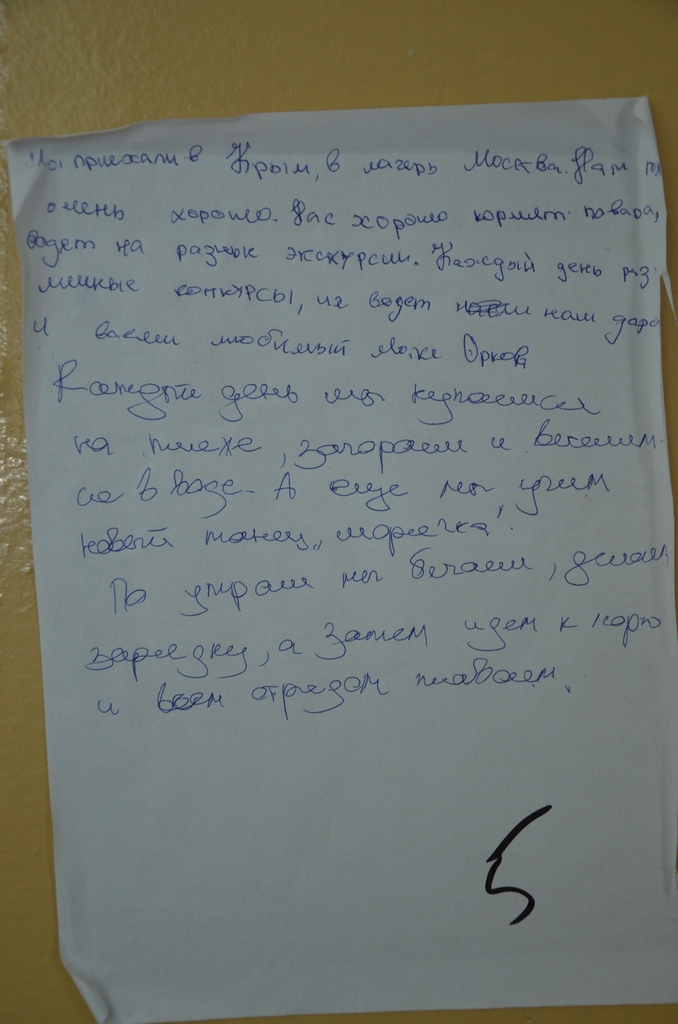 Мы приехали в Крым, в лагерь Москва. Нам
очень хорошо. Нас хорошо кормят повара,
водет на разные экскурсии. Каждый день раз-
личные конкурсы, их водет нам
и всеми любимый
Каждый день мы купаемся
на пляже, загораем и веселим-
ся в воде. А еще мы учим
новый танец „морячка".
По утрам мы бегаем, делаем
зарядку, а затем идем к морю
и всем отрядом плаваем.
5